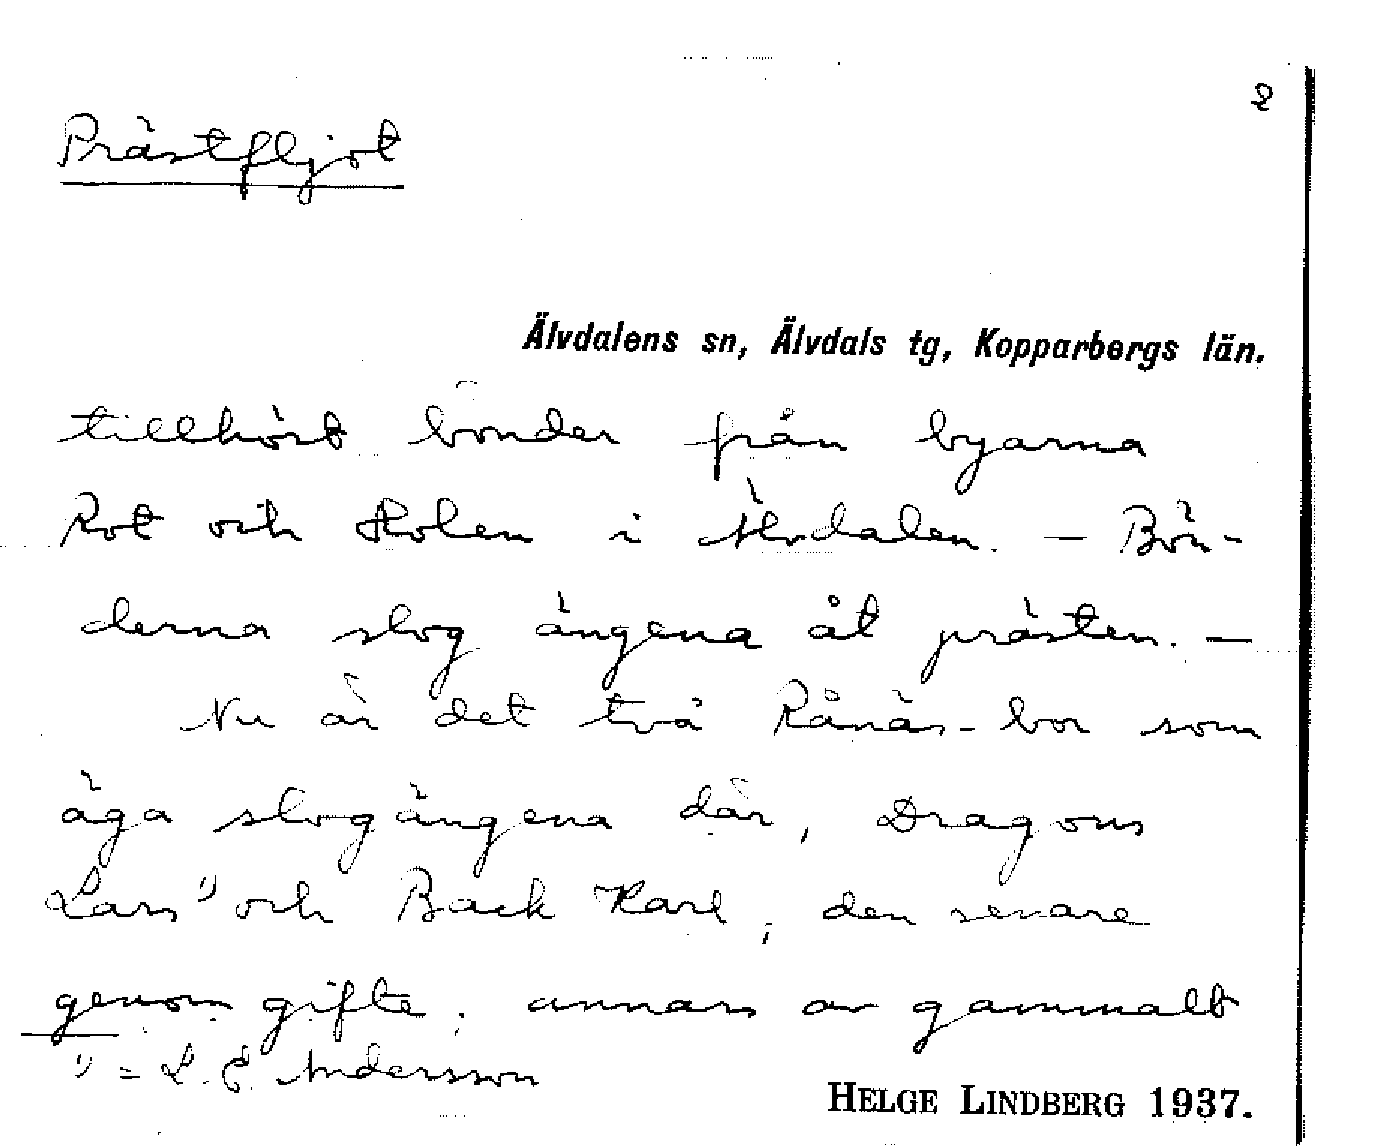 2
Prästfljot
Älvdalens sn, Älvdals tg, Kopparbergs län.
tillhört bönder från byarna
Rot och Holen i Älvdalen. — Bön-
derna slog ängena åt prästen. —
Nu är det två Rånäs-bor som
äga slogängena där, Dragons
Lars 1) och Back Karl, den senare
genom gifte; annars av gammalt
1) = L. E. Andersson
HELGE LINDBERG 1937.